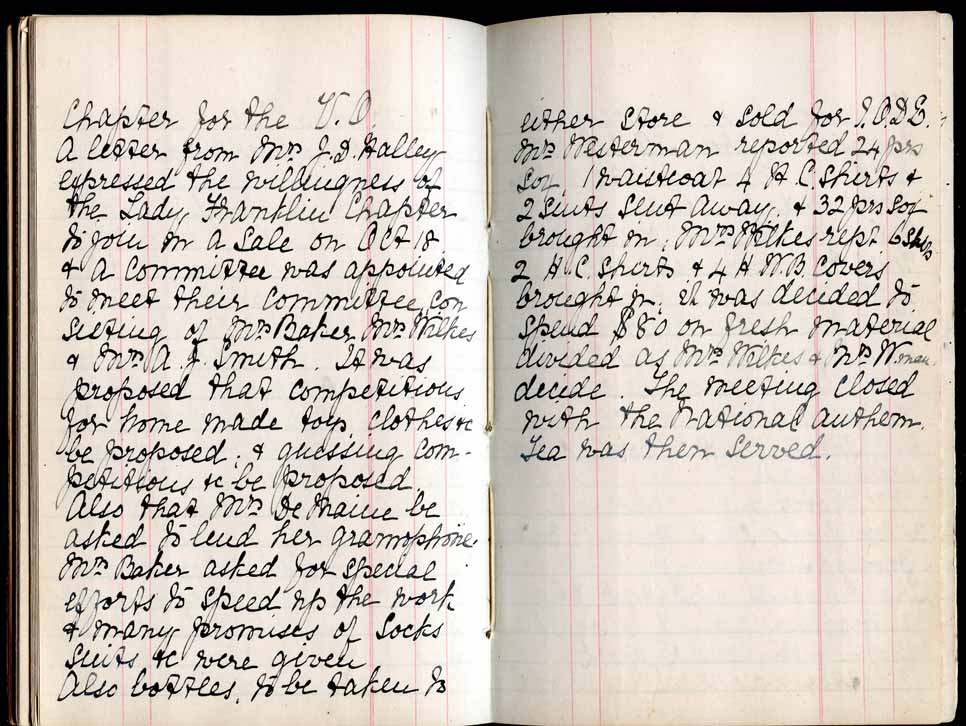 Chapter for the V. O
A letter from Mrs J. D. Halley
expressed the willingness of
the Lady Franklin Chapter
to join in a Sale on Oct 18
& a Committee was appointed
to meet their Committee, Con
sisting of Mrs Baker Mrs Wilkes
& Mrs A. J. Smith. It was
proposed that competitions
for home made toys, clothes &c
be proposed, & guessing com-
petitions &c be proposed
Also that Mrs De Maine be
asked to lend her gramophone.
Mrs Baker asked for special
efforts to speed up the work
& many promises of Socks
Suits &c were given
Also bottles, to be taken to
either Store & sold for I.O.D.E.
Mrs Westerman reported 24 prs
Sox, 1 waistcoat 4 H.C. Shirts &
2 Suits sent away, & 32 prs Sox
brought in, Mrs Wilkes rept 6
2 H.C. Shirts & 4 H.W.B. Covers
brought in. it was decided to
spend $80 on fresh material
divided as Mrs Wilkes & Mrs W.man
decide. The meeting closed
with the National anthem.
Tea was then served.